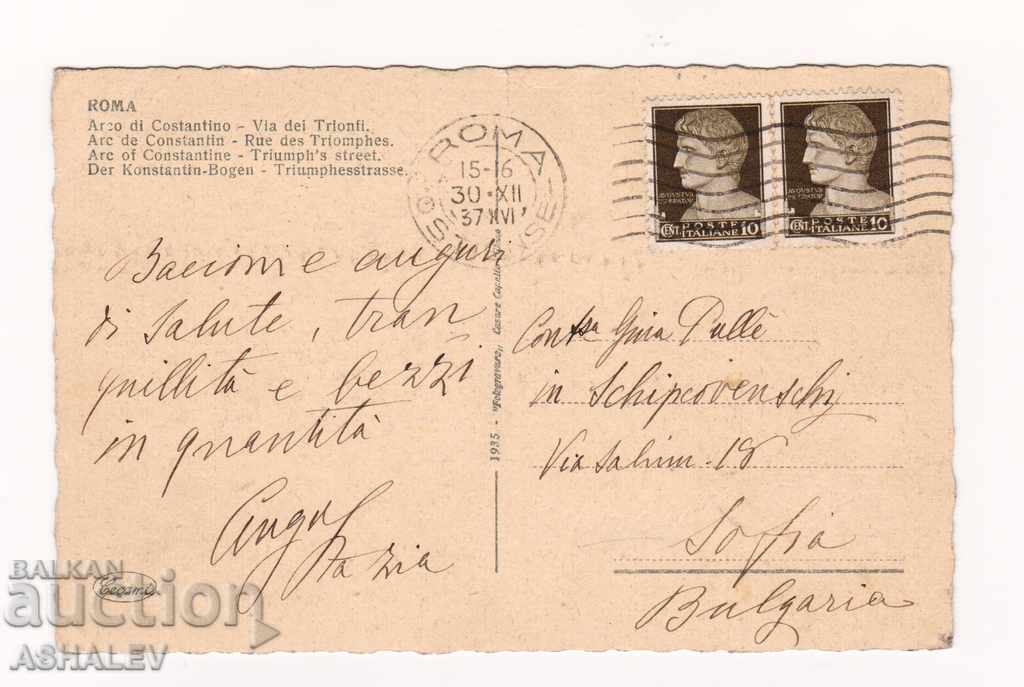 ROMA
Arco di Costantino - Via dei Trionfi.
Arc de Constantin - Rue des Triomphes.
Arc of Constantine - Triumph's street.
Der Konstantin-Bogen - Triumphesstrasse.
ROMA
15-16
30·XII
37XVI
AVGVSTVS
CENT. POSTE ITALIANE 10
AVGVSTVS
CENT. POSTE ITALIANE 10
Bacioni e auguri
di salute, tran
quillità e bezzi
in quantità
zia
1935 - "Fotogravure" Cesare Capello
Contssa Gina Pullè
in Schipcovenschy
Via 18
Sofia
Bulgaria
BALKAN
auction
ASHALEV